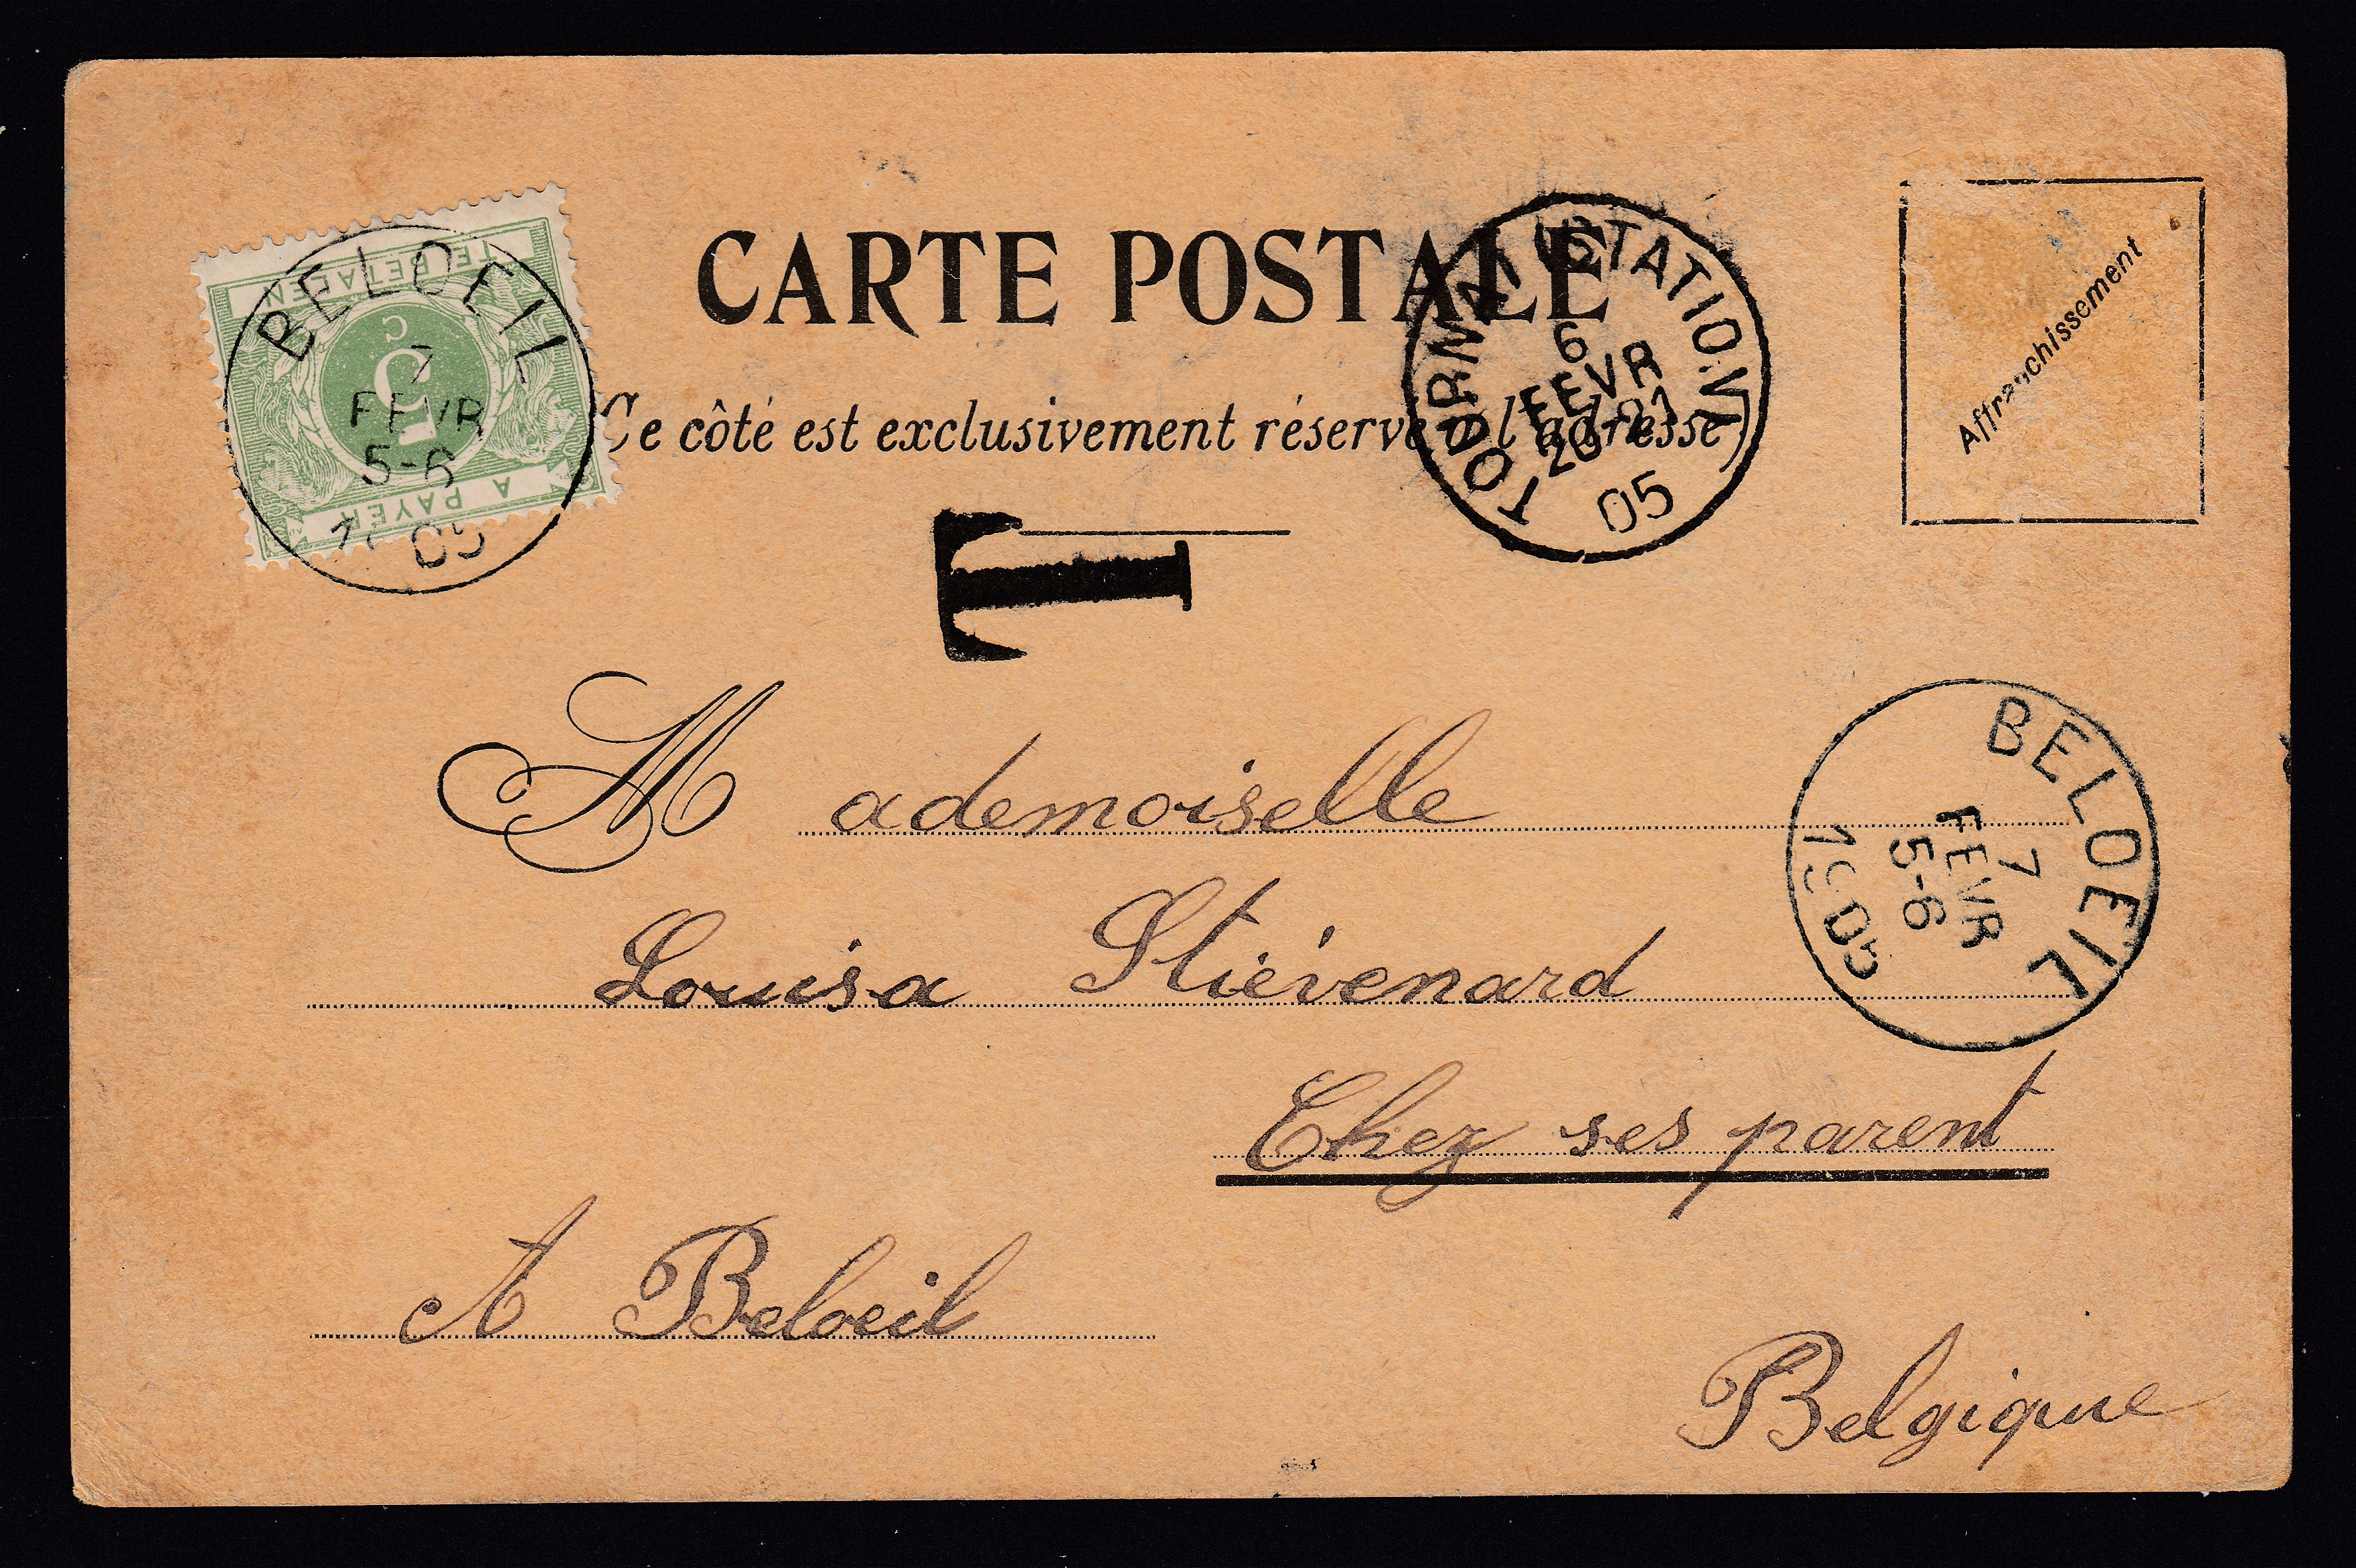 CARTE POSTALE
Ce côté est exclusivement réservé à l'adresse)
Affranchissement
TOURNAI (STATION)
6
FEVR
20-21
05
TE BETALEN
5
C
A PAYER
BELOEIL
7
FEVR
5-6
1905
T
Mademoiselle
Louisa Stiévenard
Chez ses parent
A Beloeil
Belgique
BELOEIL
7
FEVR
5-6
1905